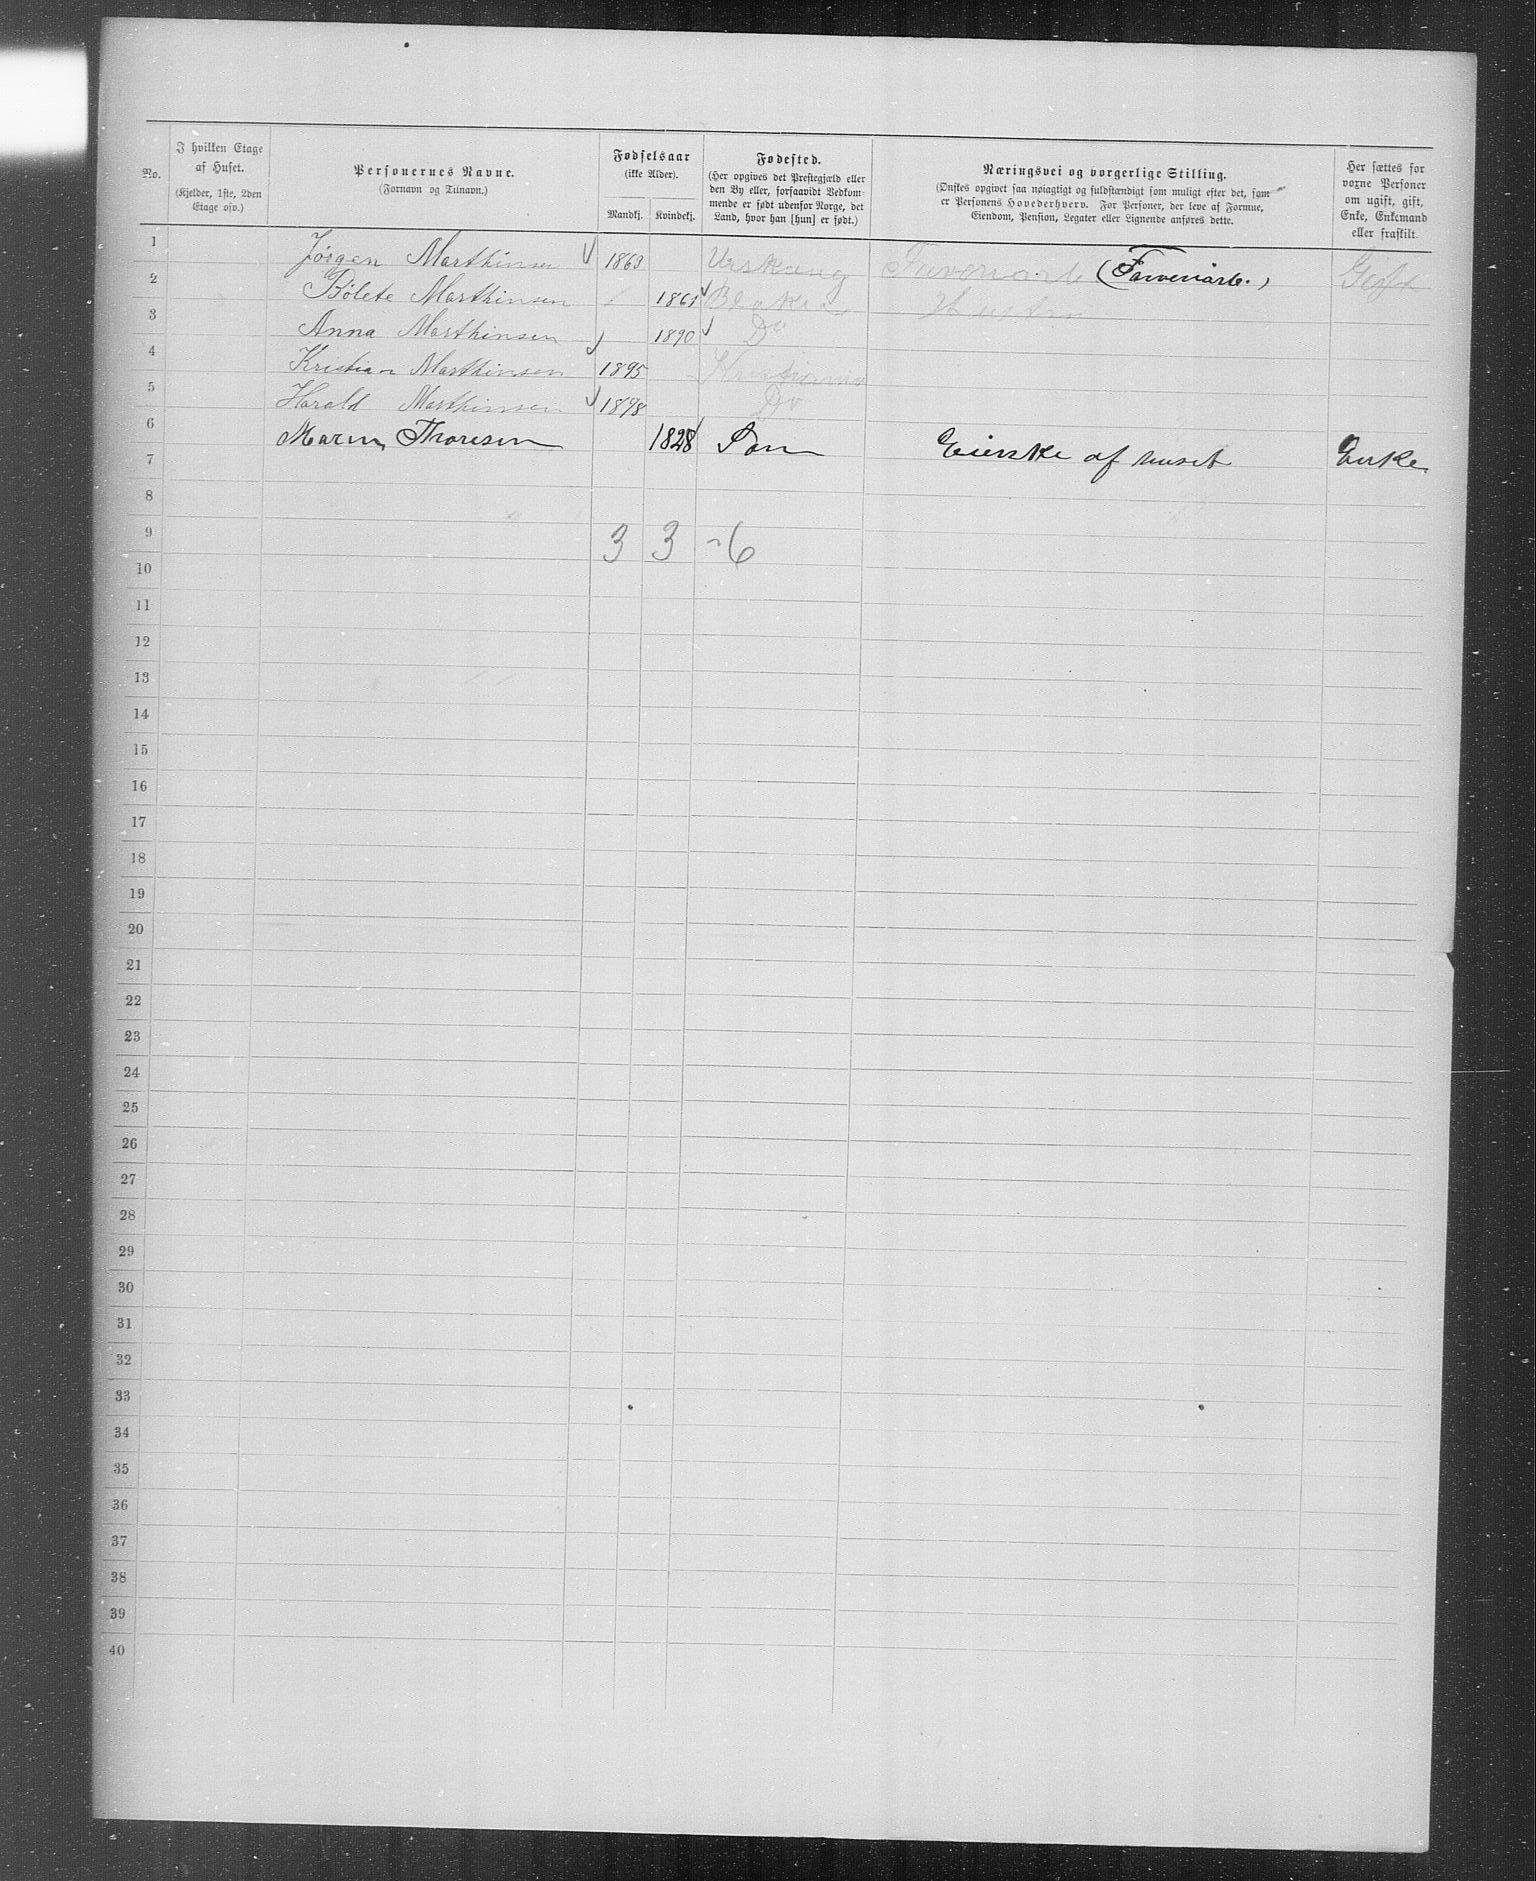 No.
I hvilken Etage af Huset.
(Kjelder, 1ste, 2den Etage osv.)
Personernes Navne.
(Fornavn og Tilnavn.)
Fødselsaar
(ikke Alder).
Mandkj. Kvindekj.
Fødested.
(Her opgives det Prestegjæld eller
den By eller, forsaavidt Vedkom-
mende er født udenfor Norge, det
Land, hvor han [hun] er født.)
Næringsvei og borgerlige Stilling.
(Ønskes opgivet saa nøiagtigt og fuldstændigt som muligt efter det, som
er Personens Hovederhverv. For Personer, der leve af Formue,
Eiendom, Pension, Legater eller Lignende anføres dette.
Her sættes for
voxne Personer
om ugift, gift,
Enke, Enkemand
eller fraskilt.
1 Jørgen Marthinsen 1863 Urskoug Farveriarb (Farveriarb.) Gift
2 Bolete Marthinsen 1861 Blaker Hustru
3 Anna Marthinsen 1890 Do
4 Kristian Marthinsen 1895 Kristiania
5 Harald Marthinsen 1898 Do
6 Maren Thoresen 1828 Eierske af huset Enke
7
8
9 3 3 - 6
10
11
12
13
14
15
16
17
18
19
20
21
22
23
24
25
26
27
28
29
30
31
32
33
34
35
36
37
38
39
40